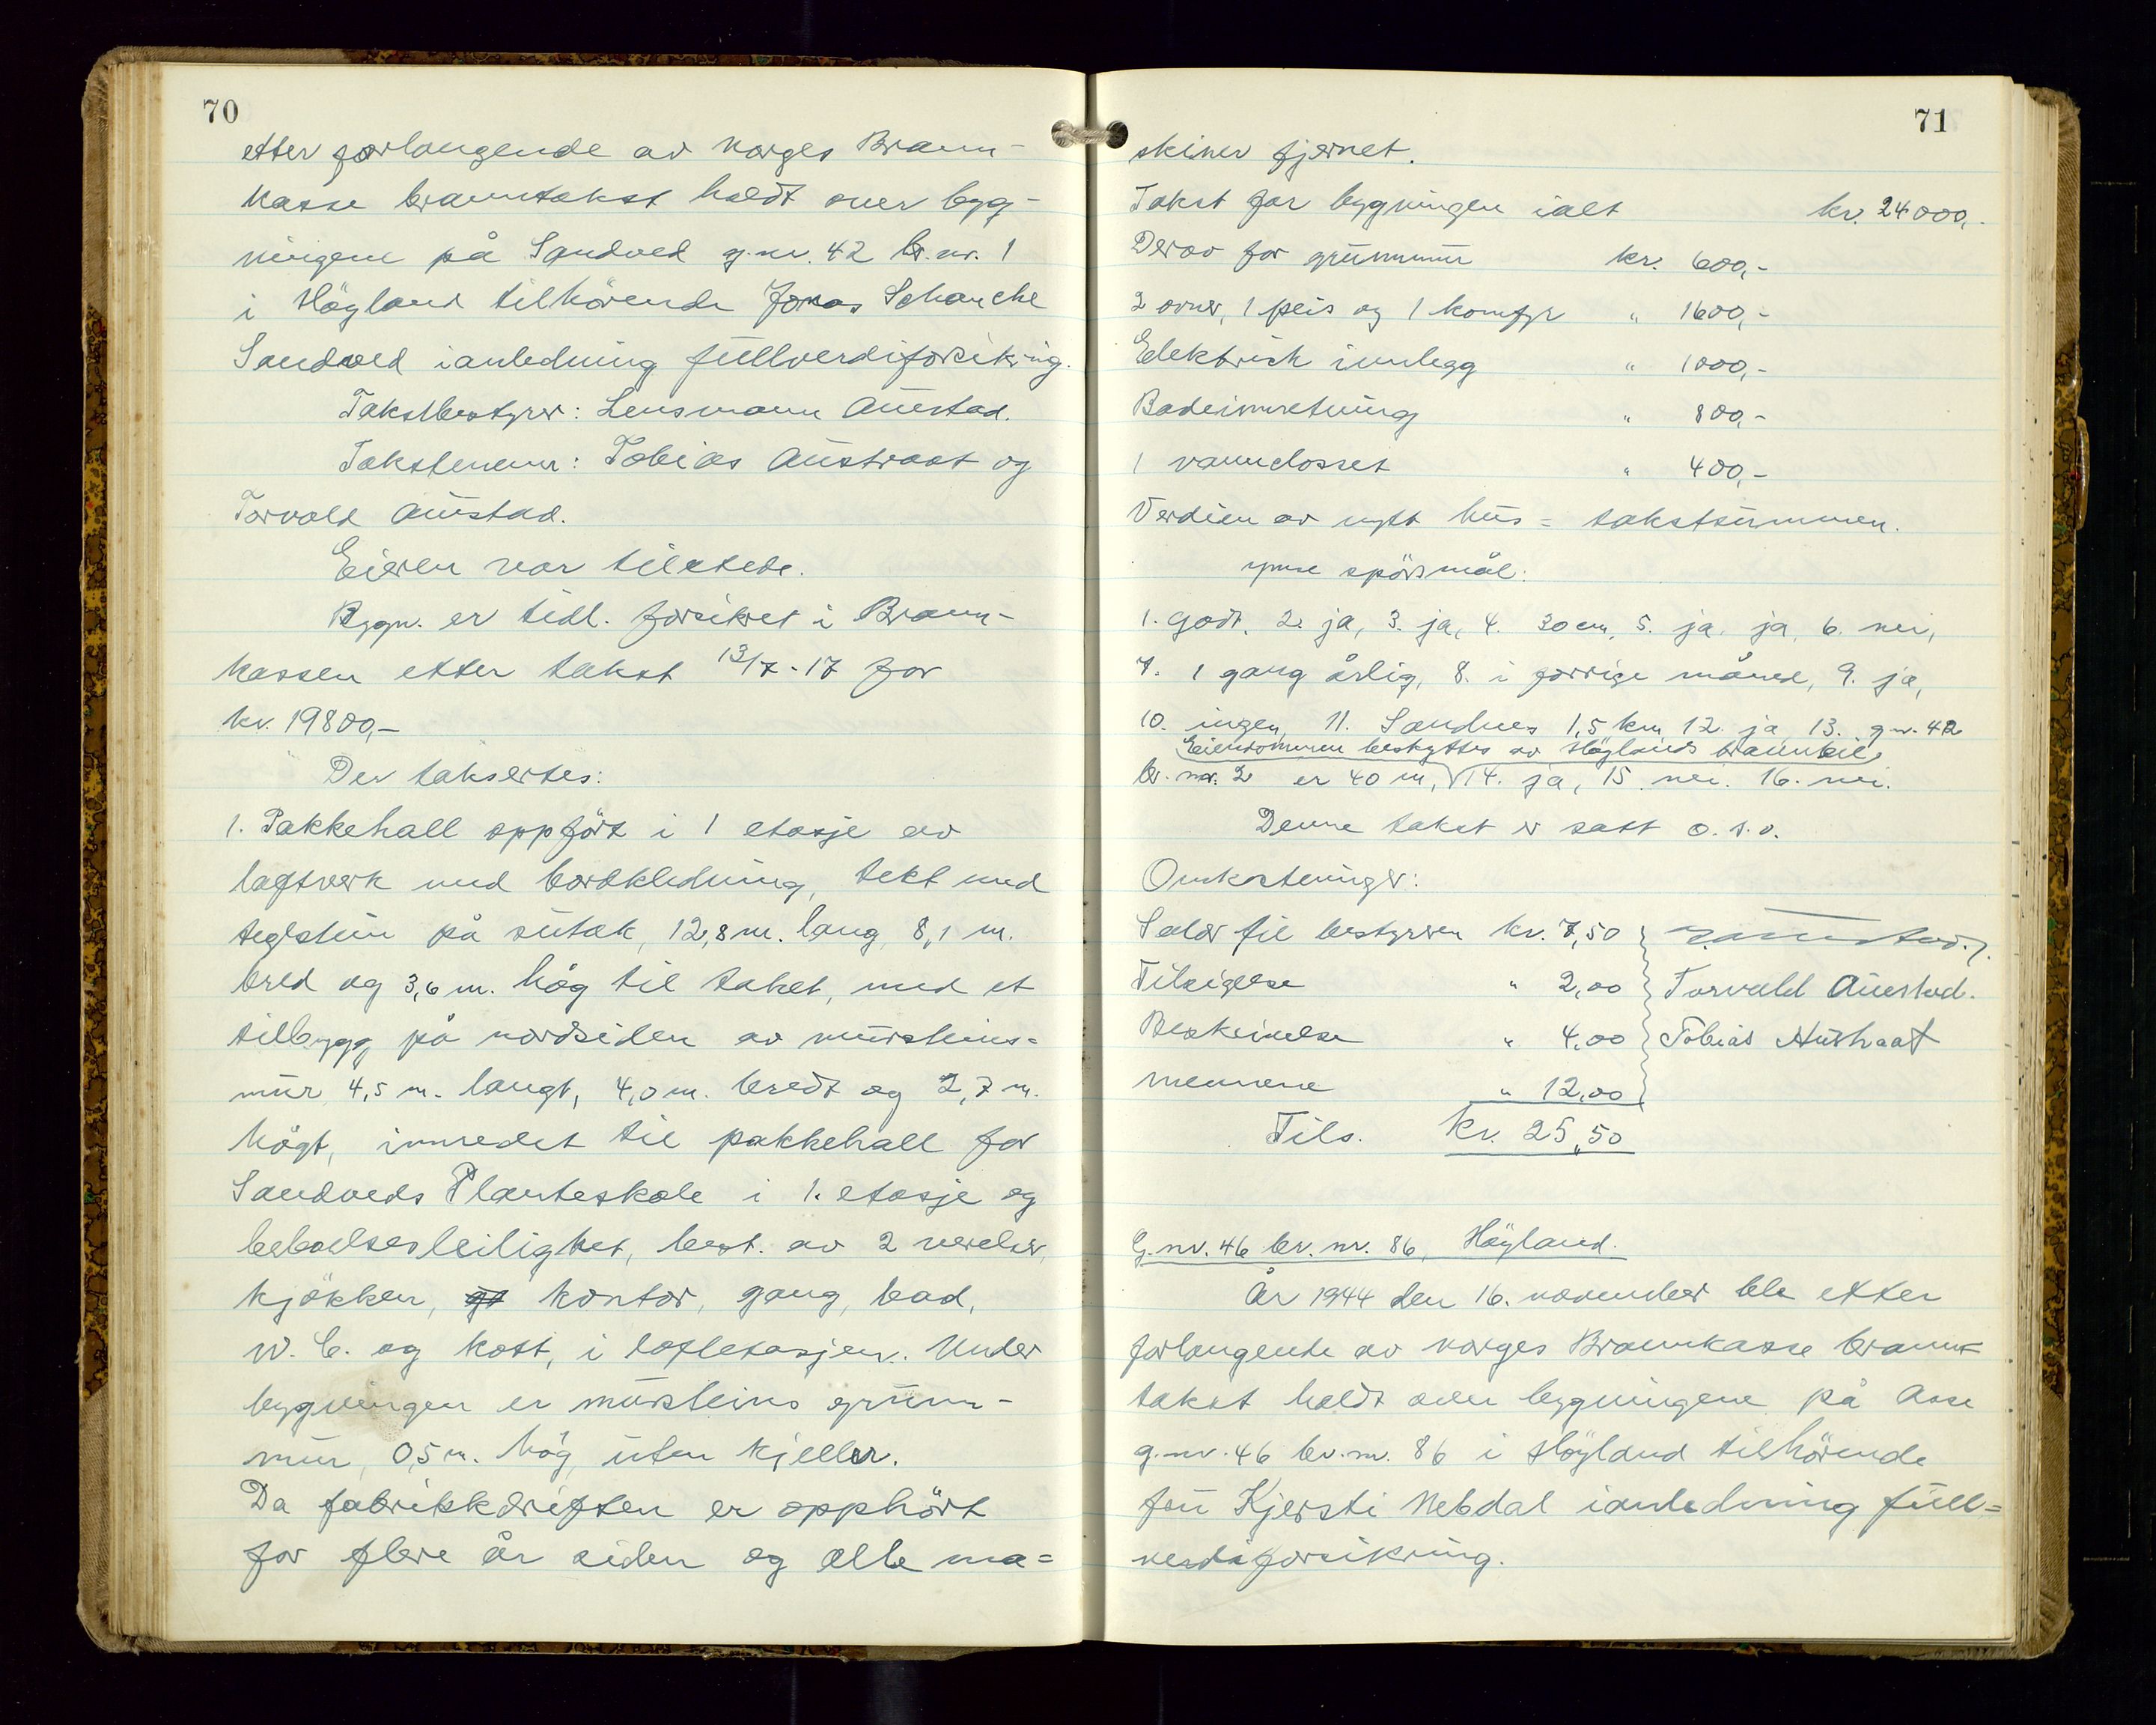 70
etter forlangende av Norges Brann-
kasse branntakst holdt over byg-
ningene på Sandved g.nr. 42 br.nr. 1
i Höyland tilhörende Jonas Schanche
Sandved ianledning fullverdiforsikring.
Takstbestyrer: Lensmann Aurstad.
Takstmenn: Tobias Austraat og
Torvald Aurstad.
Eieren var tilstede.
Bygn. er tidl. forsikret i Brann-
kassen etter takst 13/7-17 for
kr. 19800,-
Der taksertes:
1. Pakkehall oppfört i 1 etasje av
laftverk med bordkledning, tekt med
teglstein på sutak, 12,8 m. lang 8,1 m.
bred og 3,6 m. hög til taket, med et
tilbygg på nordsiden av mursteins-
mur 4,5 m. langt, 4,0 m. bredt og 2,7 m.
högt, innredet til pakkehall for
Sandveds Planteskole i 1. etasje og
beboelsesleilighet, best. av 2 værelser,
kjökken, og kontor, gang, bad,
W.C. og kott, i loftetasjen. Under
bygningen er mursteins grunn-
mur, 0,5 m. hög, uten kjeller.
Da fabrikkdriften er opphört
for flere år siden og alle ma=
71
skiner fjernet.
Takst for bygningen ialt kr. 24000,-
Derav for grunnmur kr. 600,-
2 ovner, 1 peis og 1 komfyr " 1600,-
Elektrisk innlegg " 1000,-
Badeinnretning " 800,-
1 vannclosset " 400,-
Verdien av nytt hus = takstsummen.
Ymse spörsmål:
1. godt. 2. ja, 3. ja, 4. 30 cm, 5. ja. ja, 6. nei,
7. 1 gang årlig, 8. i forrige måned, 9. ja,
10. ingen, 11. Sandnes 1,5 km, 12. ja, 13. g.nr. 42
Eiendommen beskyttes av Höylands brannbil,
br. nr. 2 er 40 m, 14. ja, 15. nei. 16. nei.
Denne takst er satt o.s.v.
Omkostninger:
Salær til bestyreren kr. 7,50 Aurstad.
Tilsigelse " 2,00 Torvald Aurstad.
Beskrivelse " 4.00 Tobias Austraat
mennene " 12,00
Tils. kr. 25,50
G.nr. 46 br. nr. 86, Höyland.
År 1944 den 16. november ble etter
forlangende av Norges Brannkasse brann=
takst holdt over bygningene på Asse
g.nr. 46 br.nr. 86 i Höyland tilhörende
fru Kjersti Nebdal ianledning full=
verdiforsikring.